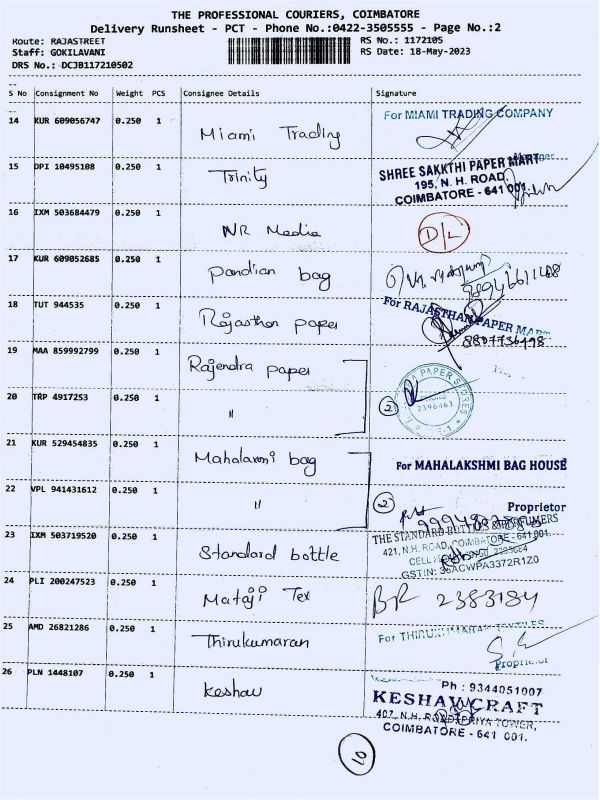 THE PROFESSIONAL COURIERS, COIMBATORE
Delivery Runsheet - PCT - Phone No.:0422-3505555 - Page No.:2
Route: RAJASTREET
RS No.: 1172105
Staff: GOKILAVANI
RS Date: 18-May-2023
DRS No.: DCJB117210502
S No Consignment No Weight PCS Consignee Details Signature
14 KUR 609056747 0.250 1 Miami Trading
For MIAMI TRADING COMPANY
Manager
15 DPI 10495108 0.250 1 Trinity
SHREE SAKKTHI PAPER MART
195, N. H. ROAD,
COIMBATORE - 641 001.
16 IXM 503684479 0.250 1 NR Media D/L
17 KUR 609052685 0.250 1 Pandian bag
18 TUT 944535 0.250 1 Rajasthan paper
For RAJASTHAN PAPER MART
8807756498
19 MAA 859992799 0.250 1 Rajendra paper
20 TRP 4917253 0.250 1 "
2
PAPER STORES
PHONE
2396463
21 KUR 529454835 0.250 1 Mahalaxmi bag
For MAHALAKSHMI BAG HOUSE
22 VPL 941431612 0.250 1 "
2
Proprietor
23 IXM 503719520 0.250 1 Standard bottle
THE STANDARD BOTTLES & PERFUMERS
421, N.H. ROAD, COIMBATORE - 641 001.
CELL
GSTIN: 33ACWPA3372R1Z0
24 PLI 200247523 0.250 1 Mataji Tex
BR 2383184
25 AMD 26821286 0.250 1 Thirukumaran
For THIRUKUMARAN TEXTILES
Proprietor
26 PLN 1448107 0.250 1 Keshav
Ph : 9344051007
KESHAV CRAFT
407, N.H. ROAD, PRIYA TOWER,
COIMBATORE - 641 001.
10